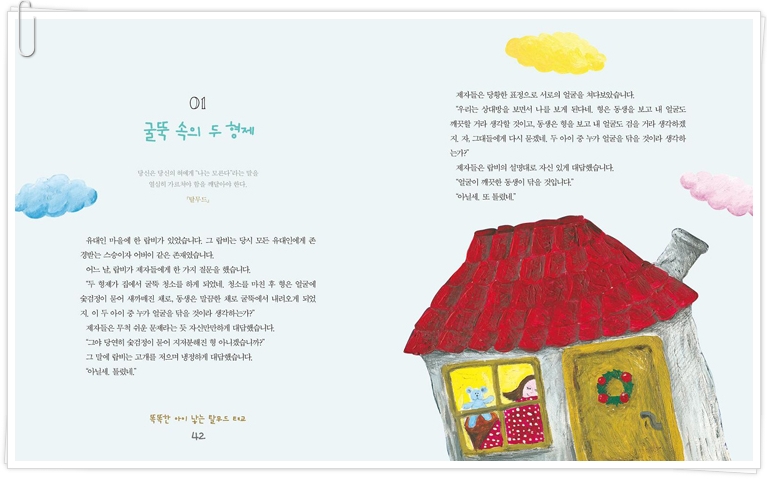 01
굴뚝 속의 두 형제
당신은 당신의 혀에게 "나는 모른다"라는 말을
열심히 가르쳐야 함을 깨달아야 한다.
『탈무드』
유대인 마을에 한 랍비가 있었습니다. 그 랍비는 당시 모든 유대인에게 존
경받는 스승이자 어버이 같은 존재였습니다.
어느 날, 랍비가 제자들에게 한 가지 질문을 했습니다.
"두 형제가 집에서 굴뚝 청소를 하게 되었네. 청소를 마친 후 형은 얼굴에
숯검정이 묻어 새까매진 채로, 동생은 말끔한 채로 굴뚝에서 내려오게 되었
지. 이 두 아이 중 누가 얼굴을 닦을 것이라 생각하는가?"
제자들은 무척 쉬운 문제라는 듯 자신만만하게 대답했습니다.
"그야 당연히 숯검정이 묻어 지저분해진 형 아니겠습니까?"
그 말에 랍비는 고개를 저으며 냉정하게 대답했습니다.
"아닐세. 틀렸네."
똑똑한 아이 낳는 탈무드 태교
42
제자들은 당황한 표정으로 서로의 얼굴을 쳐다보았습니다.
"우리는 상대방을 보면서 나를 보게 된다네. 형은 동생을 보고 내 얼굴도
깨끗할 거라 생각할 것이고, 동생은 형을 보고 내 얼굴도 검을 거라 생각하겠
지. 자, 그대들에게 다시 묻겠네. 두 아이 중 누가 얼굴을 닦을 것이라 생각하
는가?"
제자들은 랍비의 설명대로 자신 있게 대답했습니다.
"얼굴이 깨끗한 동생이 닦을 것입니다."
"아닐세. 또 틀렸네."